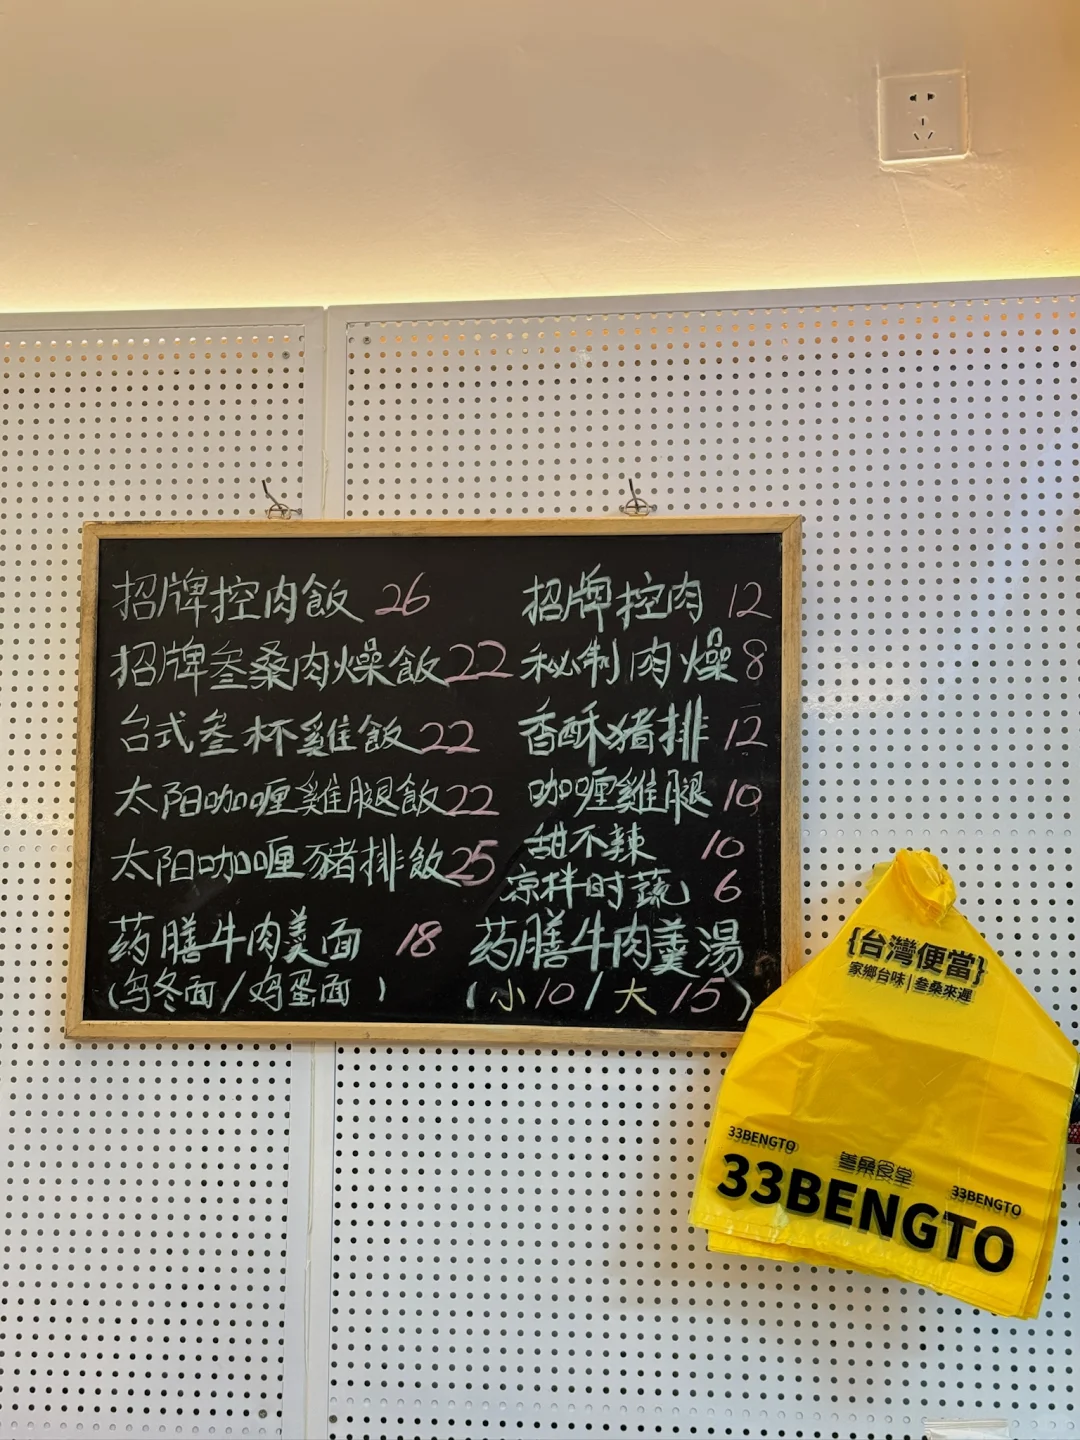 招牌控肉飯 26
招牌叁桑肉燥飯 22
台式叁杯雞飯 22
太阳咖喱雞腿飯 22
太阳咖喱豬排飯 25
药膳牛肉羹面 18
(乌冬面/鸡蛋面)
招牌控肉 12
秘制肉燥 8
香酥豬排 12
咖喱雞腿 10
甜不辣 10
凉拌时蔬 6
药膳牛肉羹湯
(小10/大15)
{台灣便當}
家鄉台味|叁桑來遲
33BENGTO
叁桑食堂
33BENGTO
33BENGTO